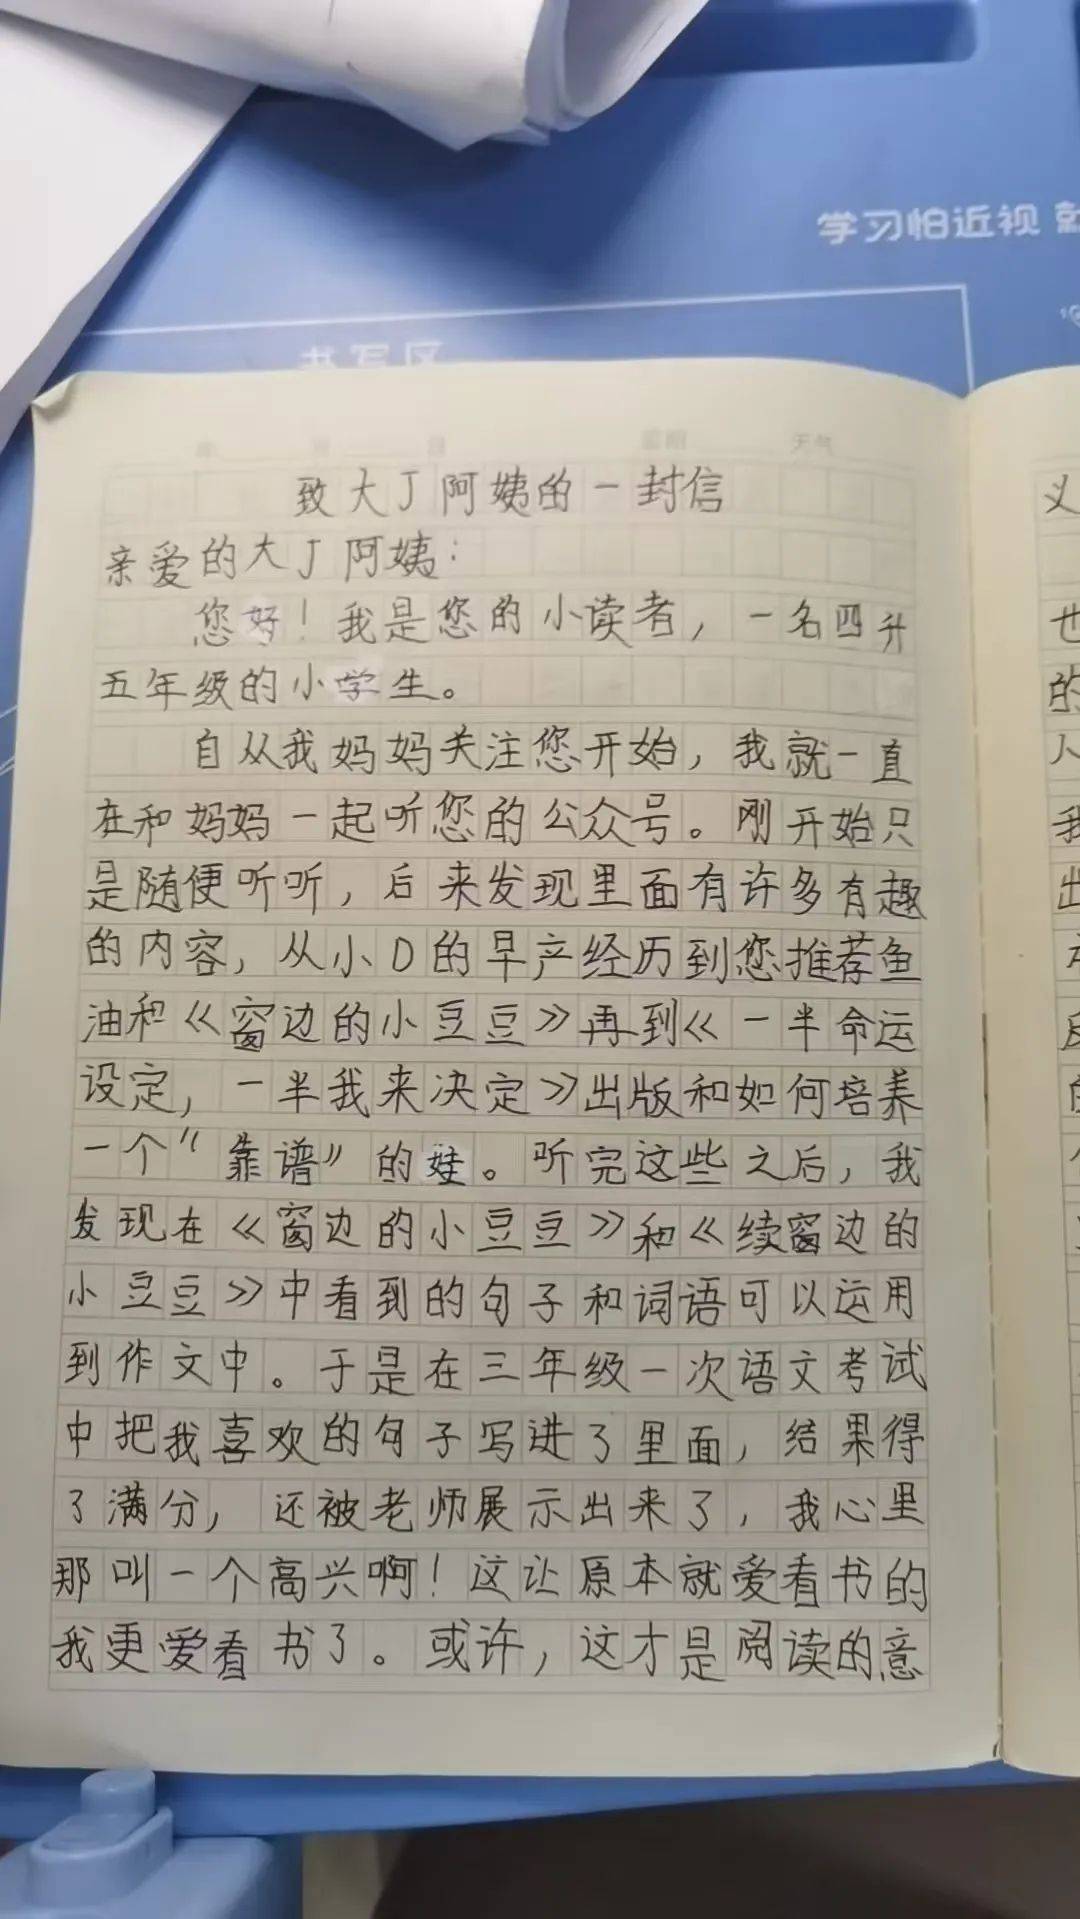 学习怕近视
书写区
天气
致大J阿姨的一封信
亲爱的大J阿姨：
您好！我是您的小读者，一名四升
五年级的小学生。
自从我妈妈关注您开始，我就一直
在和妈妈一起听您的公众号。刚开始只
是随便听听，后来发现里面有许多有趣
的内容，从小D的早产经历到您推荐鱼
油和《窗边的小豆豆》再到《一半命运
设定，一半我来决定》出版和如何培养
一个“靠谱”的娃。听完这些之后，我
发现在《窗边的小豆豆》和《续窗边的
小豆豆》中看到的句子和词语可以运用
到作文中。于是在三年级一次语文考试
中把我喜欢的句子写进了里面，结果得
了满分，还被老师展示出来了，我心里
那叫一个高兴啊！这让原本就爱看书的
我更爱看书了。或许，这才是阅读的意
义
也
的
人
我
出